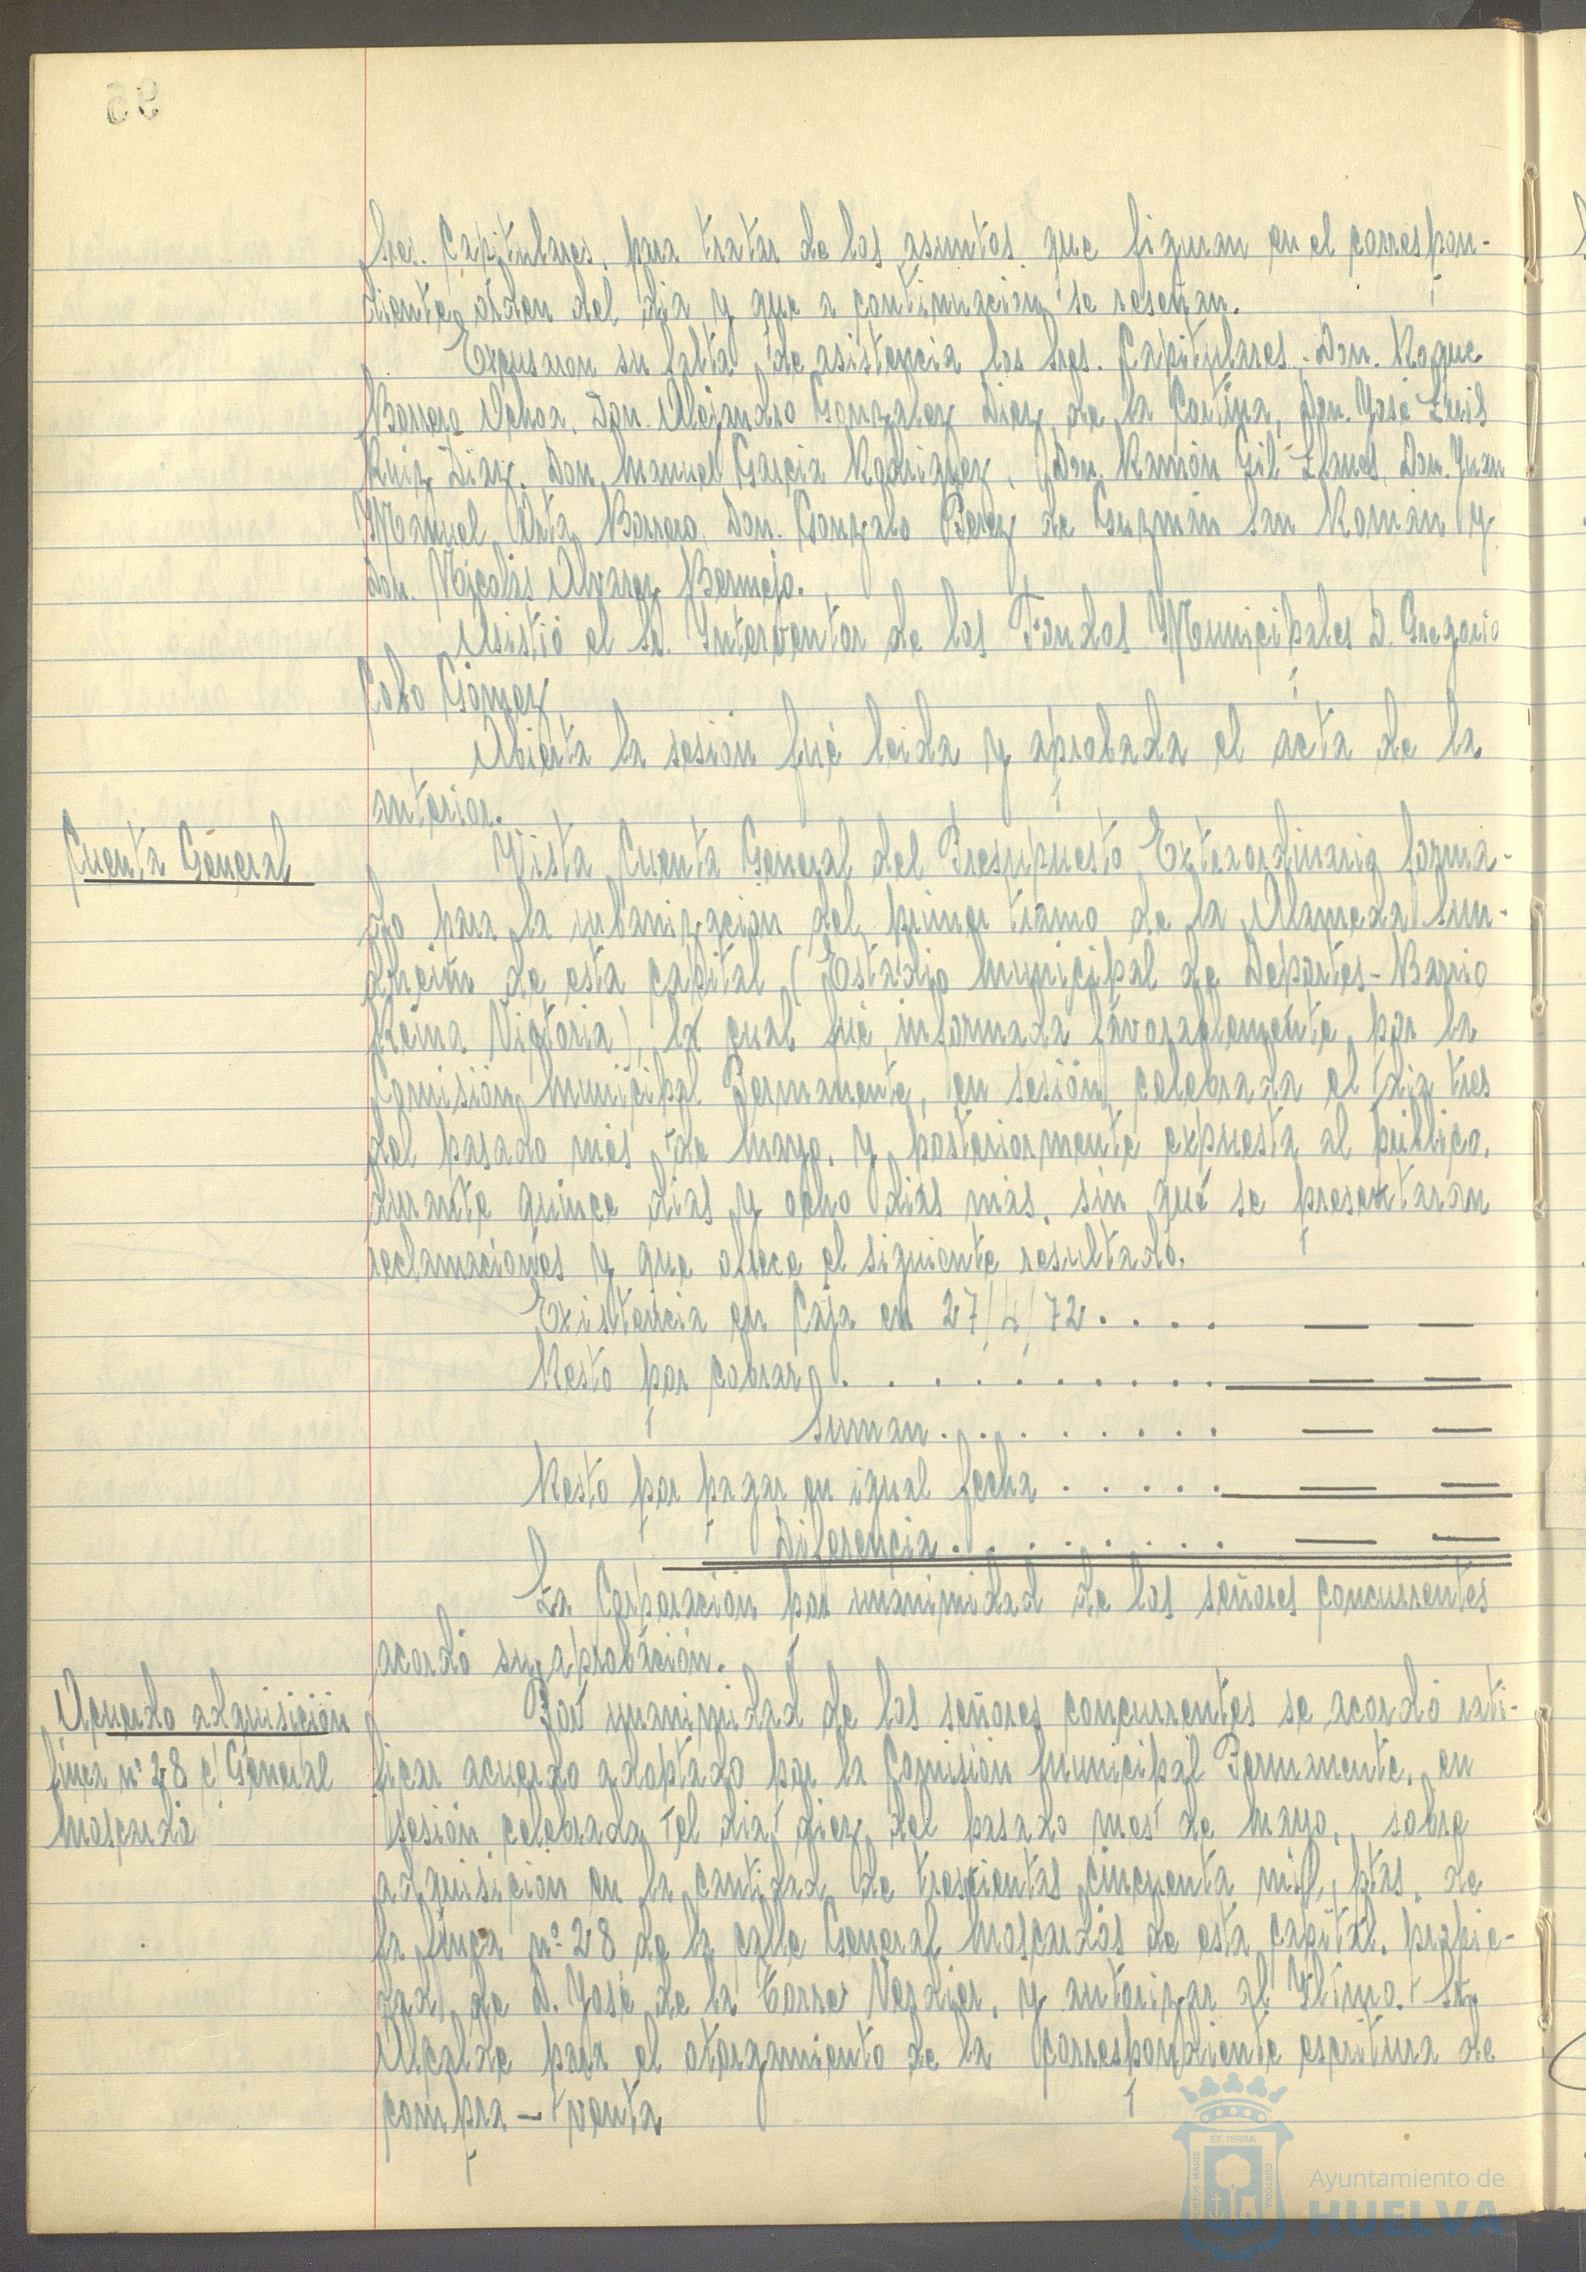 95
Sres. Capitulares, para tratar de los asuntos que figuran en el correspon-
diente orden del dia y que a continuación se reseñan.
Excusaron su falta de asistencia los Sres. Capitulares. Don. Roque
Barrero Ochoa, Don. Alejandro Gonzalez Diez de la Cortina, Don. José Luis
Ruiz Diaz, Don Manuel Garcia Rodriguez, Don Ramón Gil Llanes, Don. Juan
Manuel Orta Borrero, Don. Gonzalo Perez de Guzmán San Román y
Don. Nicolás Alvarez Bermejo.
Asistió el Sr. Interventor de los Fondos Municipales D. Gregorio
Cobo Gómez
Abierta la sesión fué leida y aprobada el acta de la
anterior.
Cuenta General
Vista Cuenta General del Presupuesto Extraordinario forma-
do para la urbanización del primer tramo de la Alameda Sun-
dheim de esta capital (Estadio Municipal de Deportes-Barrio
Reina Victoria), la cual fué informada favorablemente por la
Comisión Municipal Permanente, en sesión celebrada el dia tres
del pasado mes de Mayo, y posteriormente expuesta al público,
durante quince dias y ocho dias más, sin que se presentaran
reclamaciones y que ofrece el siguiente resultado.
Existencia en Caja en 27/4/72. . . . — —
Resto por cobrar . . . . . . . . . . — —
Suman. . . . . . . . — —
Resto por pagar en igual fecha . . . . . — —
Diferencia. . . . . . . . — —
La Corporación por unanimidad de los señores concurrentes
acordó su aprobación.
Acuerdo adquisición
finca nº 28 c/ General
Moscardó
Por unanimidad de los señores concurrentes se acordó rati-
ficar acuerdo adoptado por la Comisión Municipal Permanente, en
sesión celebrada el dia diez del pasado mes de Mayo, sobre
adquisición en la cantidad de trescientas cincuenta mil, ptas. de
la finca nº 28 de la calle General Moscardós de esta capital, propie-
dad, de D. José de la Torre Verdier, y autorizar al Iltmo. Sr.
Alcalde para el otorgamiento de la correspondiente escritura de
compra - venta
PORTUS MARIS
ET TERRÆ
CUSTODIA
Ayuntamiento de
HUELVA